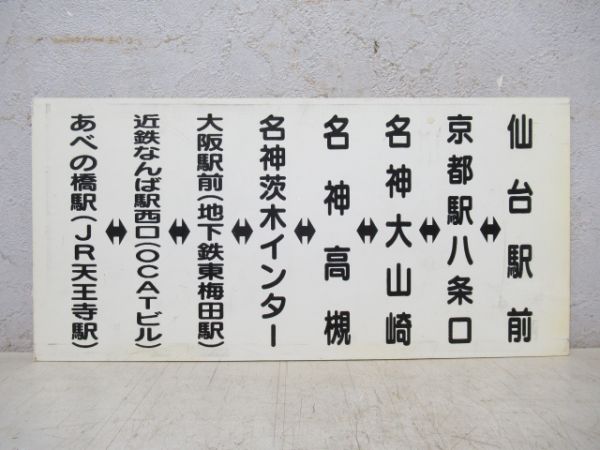 仙台駅前
↔
京都駅八条口
↔
名神大山崎
↔
名神高槻
↔
名神茨木インター
↔
大阪駅前(地下鉄東梅田駅)
↔
近鉄なんば駅西口(OCATビル)
↔
あべの橋駅(JR天王寺駅)